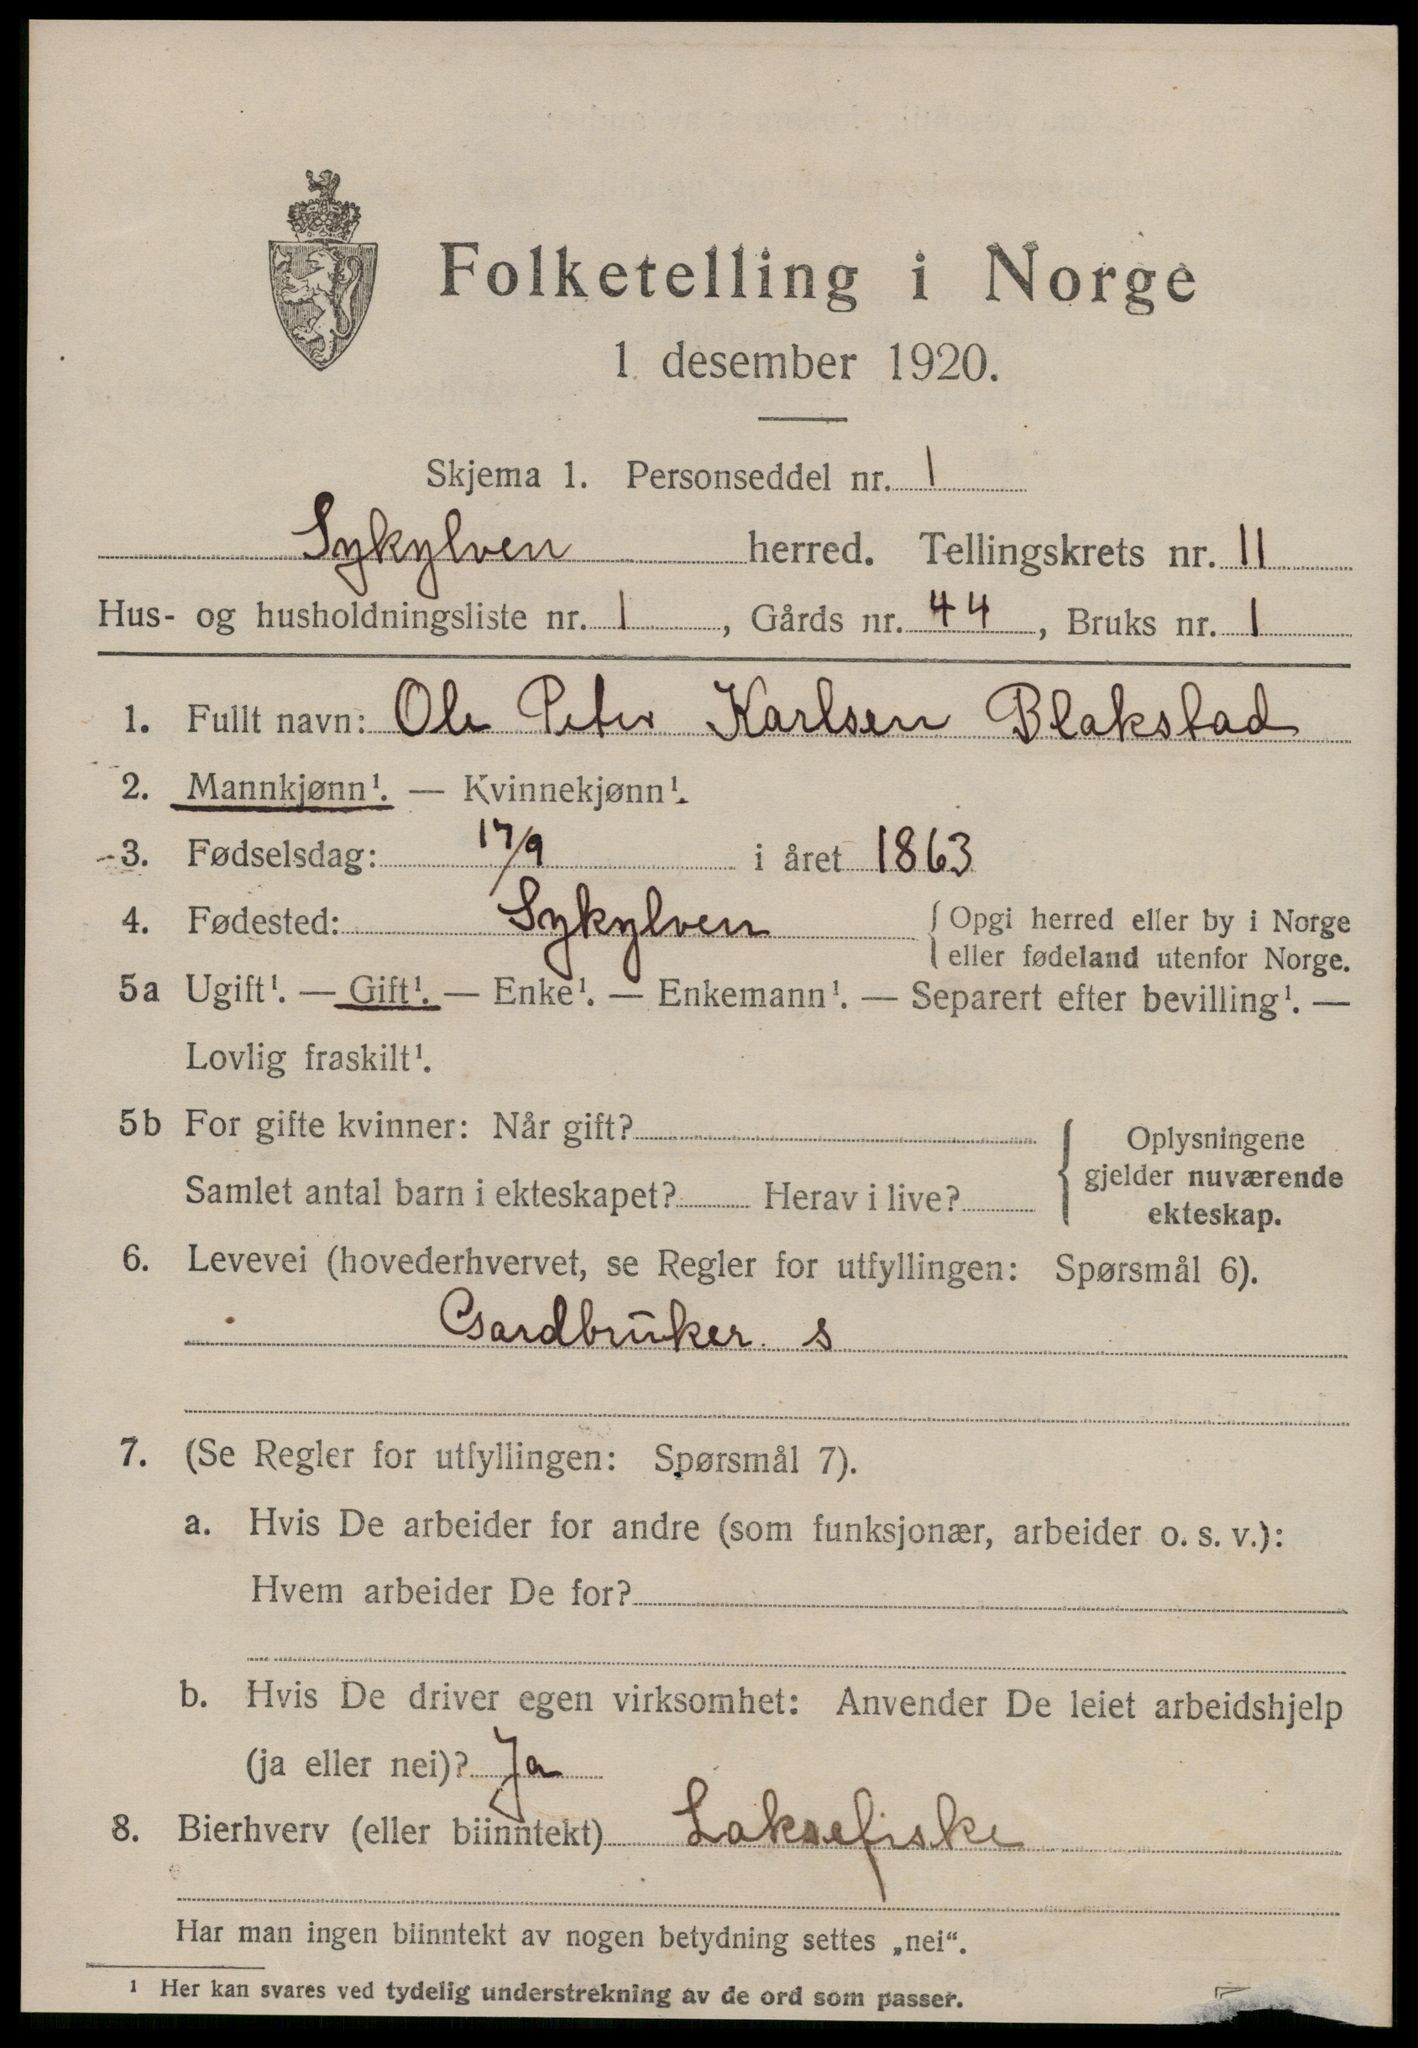 Folketelling i Norge
1 desember 1920.
Skjema 1. Personseddel nr. 1
Sykylven herred. Tellingskrets nr. 11
Hus- og husholdningsliste nr. 1, Gårds nr. 44, Bruks nr. 1
1. Fullt navn: Ole Peter Karlsen Blakstad
2. Mannkjønn¹. — Kvinnekjønn¹.
3. Fødselsdag: 17/9 i året 1863
4. Fødested: Sykylven { Opgi herred eller by i Norge
eller fødeland utenfor Norge.
5a Ugift¹. — Gift¹. — Enke¹. — Enkemann¹. — Separert efter bevilling¹. —
Lovlig fraskilt¹.
5b For gifte kvinner: Når gift?
Samlet antal barn i ekteskapet? Herav i live?
{ Oplysningene
gjelder nuværende
ekteskap.
6. Levevei (hovederhvervet, se Regler for utfyllingen: Spørsmål 6).
Gardbruker s
7. (Se Regler for utfyllingen: Spørsmål 7).
a. Hvis De arbeider for andre (som funksjonær, arbeider o. s. v.):
Hvem arbeider De for?
b. Hvis De driver egen virksomhet: Anvender De leiet arbeidshjelp
(ja eller nei)? Ja
8. Bierhverv (eller biinntekt) Laksefiske
Har man ingen biinntekt av nogen betydning settes „nei“.
¹ Her kan svares ved tydelig understrekning av de ord som passer.